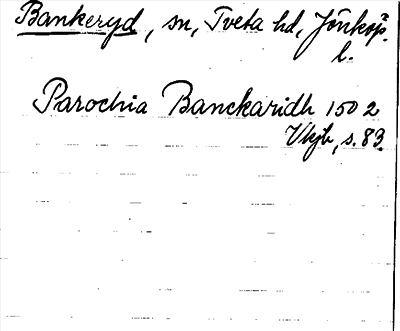 Bankeryd, sn, Tveta hd, Jönköp.
l.
Parochia Banckaridh 1502
Vkjb, s. 83.